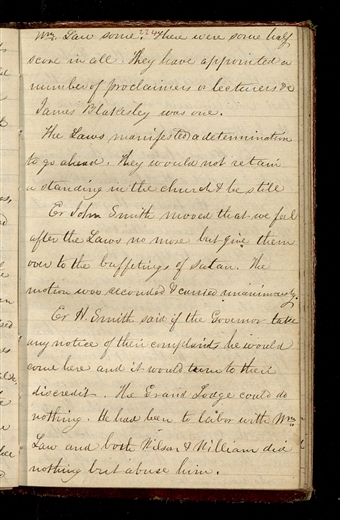 Wm. Law some. There were some half
score in all. They have appointed a
number of proclaimers or lecturers &c
James Blakesley was one.
The Laws manifested a determination
to go ahead. They would not retain
a standing in the church & be still
Er John Smith moved that we feel
after the Laws no more but give them
over to the buffetings of satan. The
motion was seconded & carried unanimously.
Er H Smith said if the Governor take
any notice of their complaints he would
come here and it would turn to their
discredit. The Grand Lodge could do
nothing. He had been to labor with Wm
Law and both Wilson & William did
nothing but abuse him.